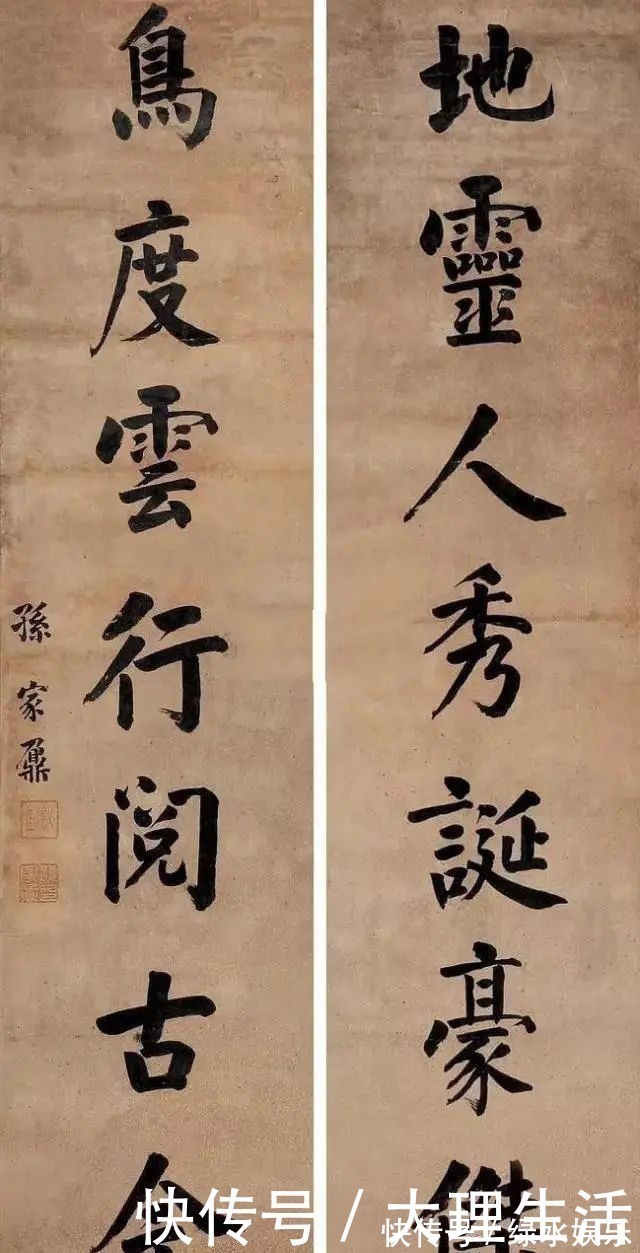 地靈人秀誕豪傑
鳥度雲行閱古今
孫家鼐
快传号/大理生活
快传号/绿水娱乐